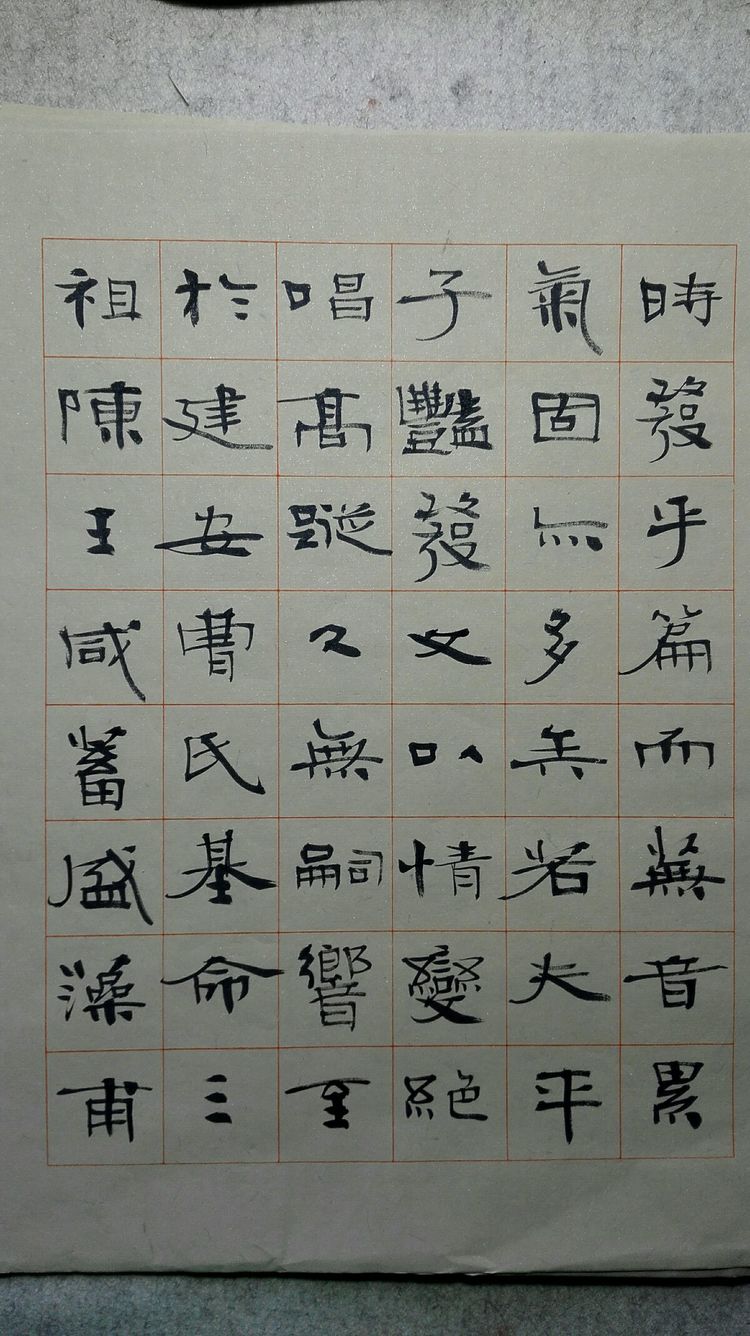 時發乎篇而蕪音累
氣固亦多矣若夫平
子豔發文以情變絕
唱高蹤久無嗣響至
於建安曹氏基命三
祖陳王咸蓄盛藻甫